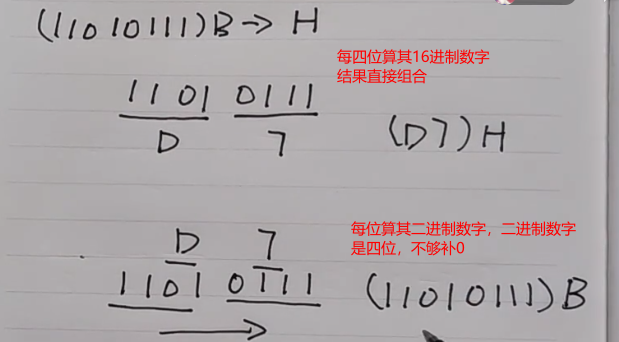 (11010111)B→H
每四位算其16进制数字
结果直接组合
1101 0111
D 7 (D7)H
每位算其二进制数字，二进制数字
是四位，不够补0
D 7
1101 0111 (11010111)B